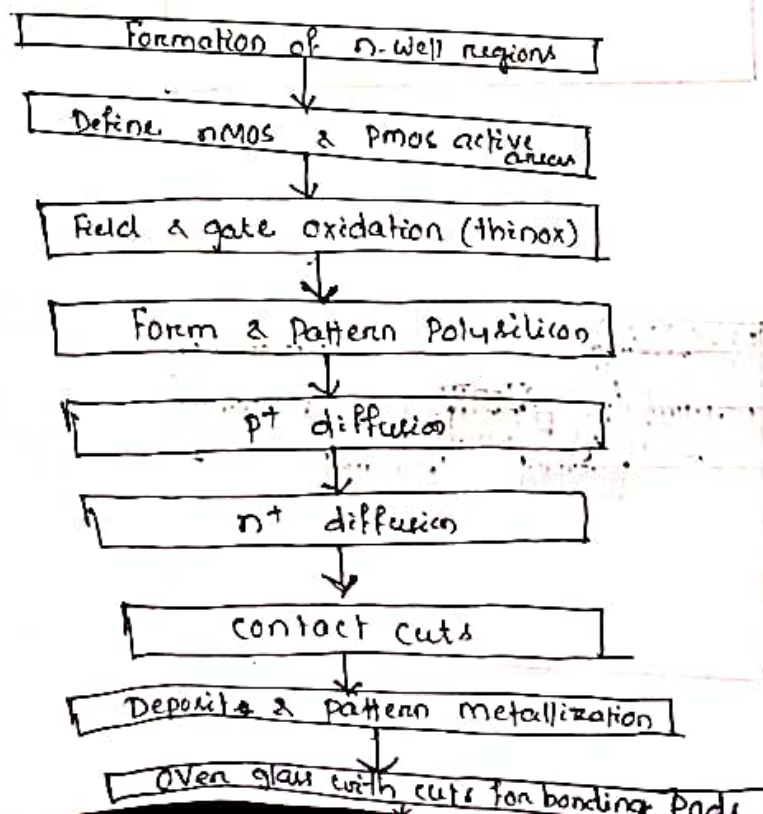 Formation of n-well regions
Define nMOS & PMOS active
areas
Field & gate oxidation (thinox)
Form & Pattern Polysilicon
p+ diffusion
n+ diffusion
Contact cuts
Deposit & pattern metallization
Over glass with cuts for bonding Pads